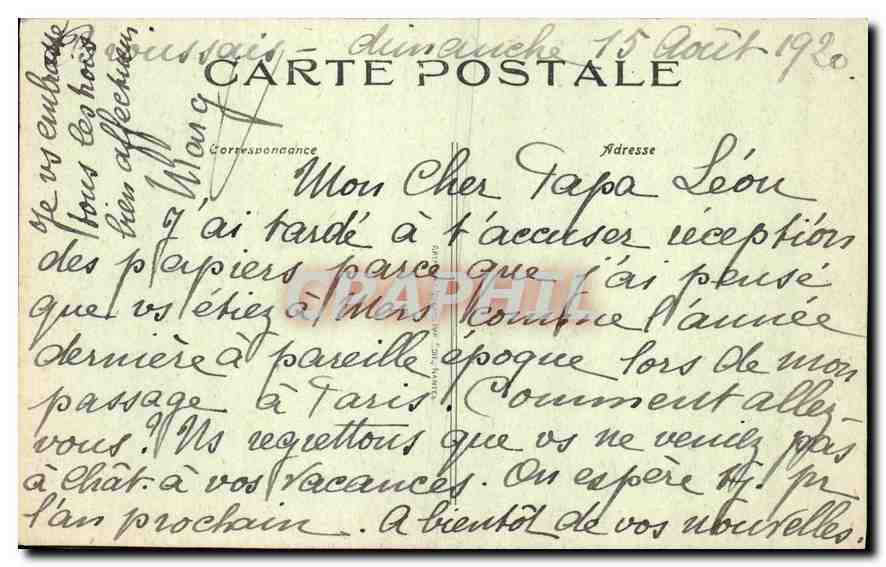 Broussais - dimanche 15 Août 1920
CARTE POSTALE
Correspondance
Adresse
Mon Cher Papa Léon
J'ai tardé à t'accuser réception
des papiers parce que j'ai pensé
que vs étiez à Mers comme l'année
dernière à pareille époque lors de mon
passage à Paris. Comment allez-
vous? Ns regrettons que vs ne veniez pas
à Chât. à vos vacances. On espère tj. pr
l'an prochain. A bientôt de vos nouvelles.
Je vs embrasse
tous les trois
bien affectueust
CPAPHIL